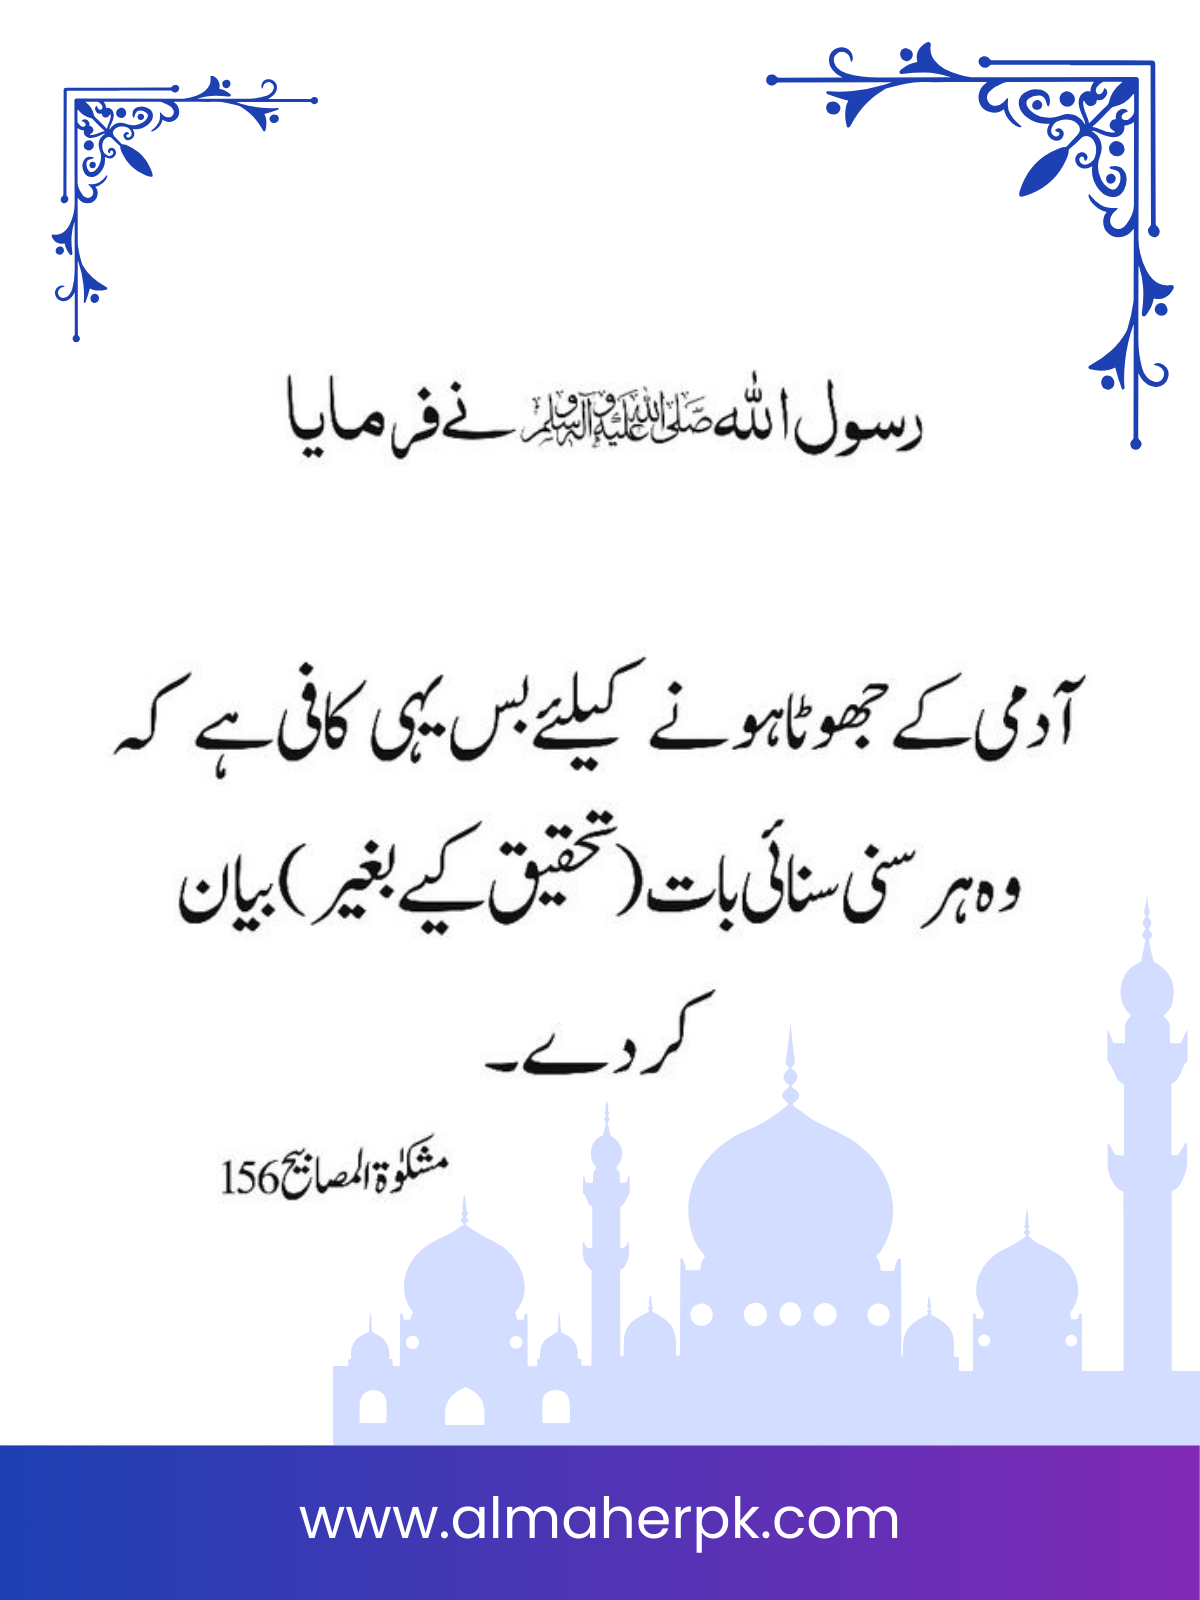 رسول اللہ صلی اللہ علیہ وآلہ وسلم نے فرمایا
آدمی کے جھوٹا ہونے کیلئے بس یہی کافی ہے کہ
وہ ہر سنی سنائی بات (تحقیق کیے بغیر) بیان
کر دے۔
مشکوٰۃ المصابیح 156
www.almaherpk.com